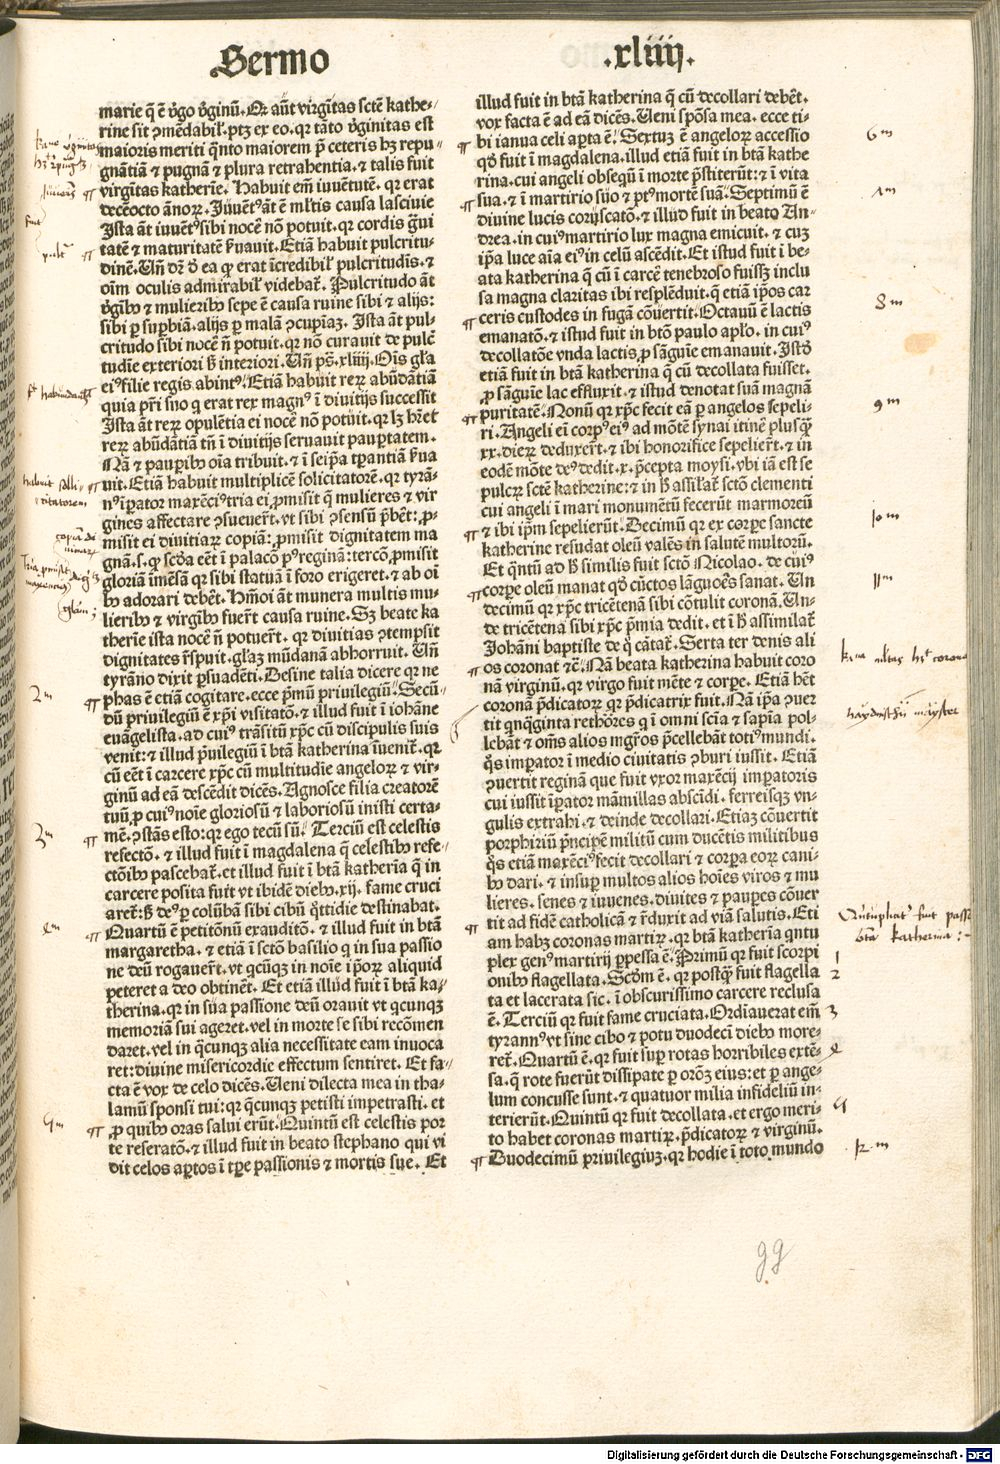 Sermo .xliiij.
marie q̄ ē v̓go v̓ginū. Qr aūt virgītas sctē kathe⸗
rine sit ꝯmēdabil̓. ptꝫ ex eo. qr tāto v̓ginitas est
maioris meriti q̄nto maiorem p̄ ceteris hꝫ repu⸗
gnātiā ⁊ pugnā ⁊ plura retrahentia. ⁊ talis fuit
virgītas katherīe. Habuit em̄ iuuētutē. qr erat
decēocto ānoꝝ. Iuuētꝰ āt ē ml̓tis causa lasciuie
Ista āt iuuētꝰ sibi nocē nō potuit. qr cordis ḡui
tatē ⁊ maturitatē ẜuauit. Etiā habuit pulcritu⸗
dinē. Vn̄ dr̄ d̓ ea ꝙ erat īcredibil̓ pulcritudīs. ⁊
oīm oculis admirabil̓ videbat̄. Pulcritudo āt
v̓gībꝰ ⁊ mulieribꝰ sepe ē causa ruine sibi ⁊ alijs:
sibi ꝑ supbiā. alijs ꝑ malā ꝯcupīaꝫ. Ista āt pul⸗
critudo sibi nocē n̄ potuit. qr nō curauit de pulc̄
tudīe exteriori ẜ interiori. Vn̄ ps̄. xliiij. Oīs gl̓a
eiꝰ filie regis abintꝰ. Etiā habuit reꝝ abūdātiā
quia pr̄i suo q erat rex magnꝰ ī diuitijs successit
Ista āt reꝝ opulētia ei nocē nō potuit. qr lꝫ hr̄et
reꝝ abūdātiā tn̄ ī diuitijs seruauit paupertatem.
Nā ⁊ paupībꝰ oīa tribuit. ⁊ ī seip̄a tꝑantiā ẜua
uit. Etiā habuit multiplicē solicitatorē. qr tyrā⸗
nꝰ īꝑator maxēciꝰ tria ei ꝓmisit q̄ mulieres ⁊ vir
gines affectare ꝯsueuerūt. vt sibi ꝯsensū p̄bēt: ꝓ⸗
misit ei diuitiaꝝ copiā: ꝓmisit dignitatem ma
gnā. s. ꝙ scd̓a eēt ī palacō pꝰ reginā: tercō ꝓmisit
gloriā īmēsā qr sibi statuā ī foro erigeret. ⁊ ab oī
bꝰ adorari debēt. Hmōi āt munera multis mu⸗
lieribꝰ ⁊ virgībꝰ fuerūt causa ruine. Sꝫ beate ka
therīe ista nocē n̄ potuerūt. qr diuitias ꝯtempsit
dignitates r̄spuit. gl̓aꝫ mūdanā abhorruit. Vn̄
tyrāno dixit ꝑsuadēti. Desine talia dicere qr ne
phas ē etiā cogitare. ecce pr̄mū priuilegiū. Secū⸗
dū priuilegiū ē xp̄i visitatō. ⁊ illud fuit ī iohāne
euāgelista. ad cuiꝰ trāsitū xp̄c cū discipulis suis
venit: ⁊ illud pr̄uilegiū ī btā katherina īuenit̄. qr
cū eēt ī carcere xp̄c cū multitudīe angeloꝝ ⁊ vir⸗
ginū ad eā descēdit dicēs. Agnosce filia creatorē
tuū ꝓ cuiꝰ noīe gloriosū ⁊ laboriosū inisti certa⸗
mē. ꝯstās esto: qr ego tecū sū. Terciū est celestis
refectō. ⁊ illud fuit ī magdalena q̄ celestibꝰ refe⸗
ctōibꝰ pascebat̄. et illud fuit ī btā katherīa q̄ in
carcere posita fuit vt ibidē diebꝰ. xij. fame cruci
aret̄: ẜ deꝰ ꝑ colūbā sibi cibū q̄ttidie destinabat.
Quartū ē petitōnū exauditō. ⁊ illud fuit in btā
margaretha. ⁊ etiā ī sctō basilio q in sua passio
ne deū rogauerūt. vt qcūqꝫ in noīe ip̄oꝝ aliquid
peteret a deo obtinēt. Et etiā illud fuit ī btā ka⸗
therina. qr in sua passione deū orauit vt qcunqꝫ
memoriā sui ageret. vel in morte se sibi recōmen
daret. vel in q̄cunqꝫ alia necessitate eam inuoca
ret: diuine misericordie effectum sentiret. Et fa⸗
cta ē vox de celo dicēs. Veni dilecta mea in tha⸗
lamū sponsi tui: qr q̄cunqꝫ petisti impetrasti. et
ꝓ quibꝰ oras salui erūt. Quintū est celestis por
te reseratō. ⁊ illud fuit in beato stephano qui vi
dit celos aꝑtos ī tꝑe passionis ⁊ mortis sue. Et
illud fuit in btā katherina q̄ cū decollari debēt.
vox facta ē ad eā dicēs. Veni spōsa mea. ecce ti⸗
bi ianua celi aꝑta ē. Sextuꝫ ē angeloꝝ accessio
qd̓ fuit ī magdalena. illud etiā fuit in btā kathe
rina. cui angeli obseqū ī morte p̄stiterūt: ⁊ ī vita
sua. ⁊ ī martirio suo ⁊ pꝰ mortē suā. Septimū ē
diuine lucis coruscatō. ⁊ illud fuit in beato An⸗
drea. in cuiꝰ martirio lux magna emicuit. ⁊ cuꝫ
ip̄a luce aīa eiꝰ in celū ascēdit. Et istud fuit ī be⸗
ata katherina q̄ cū ī carcē tenebroso fuissꝫ inclu
sa magna claritas ibi resplēduit. q̄ etiā ip̄os car
ceris custodes in fugā cōuertit. Octauū ē lactis
emanatō. ⁊ istud fuit in btō paulo apl̓o. in cuiꝰ
decollatōe vnda lactis ꝓ sāguīe emanauit. Istd̓
etiā fuit in btā katherina q̄ cū decollata fuisset.
ꝓ sāguīe lac effluxit. ⁊ istud denotat suā magnā
puritatē. Nonū qr xp̄c fecit eā ꝑ angelos sepeli⸗
ri. Angeli ei corpꝰ eiꝰ ad mōtē synai itinē plusq̄
xx. dieꝝ deduxerūt. ⁊ ibi honorifice sepelierūt. ⁊ in
eodē mōte deꝰ dedit. x. p̄cepta moysi. vbi iā est se
pulcꝝ sctē katherine: ⁊ in h̄ assil̓at̄ sctō clementi
cui angeli ī mari monumētū fecerūt marmoreū
⁊ ibi ip̄m sepelierūt. Decimū qr ex corꝑe sancte
katherine resudat oleū valēs in salutē multorū.
Et q̄ntū ad h̄ similis fuit sctō Nicolao. de cuiꝰ
corꝑe oleū manat qd̓ cūctos lāguoēs sanat. Vn
decimū qr xp̄c tricētenā sibi cōtulit coronā. Un⸗
de tricētena sibi xp̄c p̄mia dedit. ⁊ et ī h̄ assimilat̄
Johāni baptiste de q̄ cātat̄. Serta ter denis ali
os coronat ⁊c̄. Nā beata katherina habuit coro
nā virginū. qr virgo fuit mēte ⁊ corꝑe. Etiā hēt
coronā p̄dicatoꝝ qr p̄dicatrix fuit. Nā ip̄a ꝯuer
tit qnq̄ginta rethōres q ī omni scīa ⁊ sapīa pol⸗
lebāt ⁊ om̄s alios mgr̄os p̄cellebāt totiꝰ mundi.
q̄s imꝑator ī medio ciuitatis ꝯburi iussit. Etiā
ꝯuertit reginā que fuit vxor maxēcij imꝑatoris
cui iussit īꝑator māmillas abscīdi. ferreisqꝫ vn⸗
gulis extrahi. ⁊ deinde decollari. Etiaꝫ cōuertit
porphiriū pn̄cipē militū cum ducētis militibus
q̄s etiā maxēciꝰ fecit decollari ⁊ corꝑa eoꝝ cani⸗
bꝰ dari. ⁊ insuꝑ multos alios hoīes viros ⁊ mu
lieres. senes ⁊ iuuenes. diuites ⁊ pauꝑes cōuer
tit ad fidē catholicā ⁊ r̄duxit ad viā salutis. Eti
am habꝫ coronas martiꝝ. qr btā katherīa qntu
plex genꝰ martirij ꝑpessa ē. Primū qr fuit scorpi
onibꝰ flagellata. Scd̓m ē. qr postq̄ fuit flagella
ta et lacerata sic. ī obscurissimo carcere reclusa
ē. Terciū qr fuit fame cruciata. Ordīauerat em̄
tyrannꝰ vt sine cibo ⁊ potu duodecī diebꝰ more⸗
ret̄. Quartū ē. qr fuit suꝑ rotas horribiles extē⸗
sa. q̄ rote fuerūt dissipate ꝑ orōꝫ eius: et ꝑ ange⸗
lum concusse sunt. ⁊ quatuor milia infideliū in⸗
terierūt. Quintū qr fuit decollata. et ergo meri⸗
to habet coronas martiꝝ. p̄dicatoꝝ ⁊ virginū.
Duodecimū priuilegiuꝫ. qr hodie ī toto mundo
2m
3m
4m
5m
6m
7m
8m
9m
10m
11m
1
2
3
4
5
12m
gg
Digitalisierung gefördert durch die Deutsche Forschungsgemeinschaft - DFG